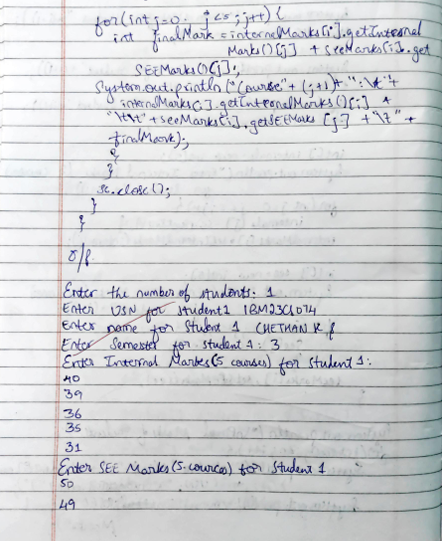 for(int j=0; j<5; j++) {
int finalMark = internalMarks[i].getInternal
Marks()[j] + seeMarks[i].get
SEEMarks()[j];
System.out.println("Course" + (j+1) + ":\t" +
internalMarks[i].getInternalMarks()[j] +
"\t\t" + seeMarks[i].getSEEMarks[j] + "\t" +
finalMark);
}
}
sc.close();
}
}
O/P.
Enter the number of students: 1
Enter USN for student1 1BM23CS074
Enter name for Student 1 CHETHAN K
Enter Semester for student 1: 3
Enter Internal Marks(5 courses) for Student 1:
40
39
36
35
31
Enter SEE Marks(5.cources) for Student 1
50
49